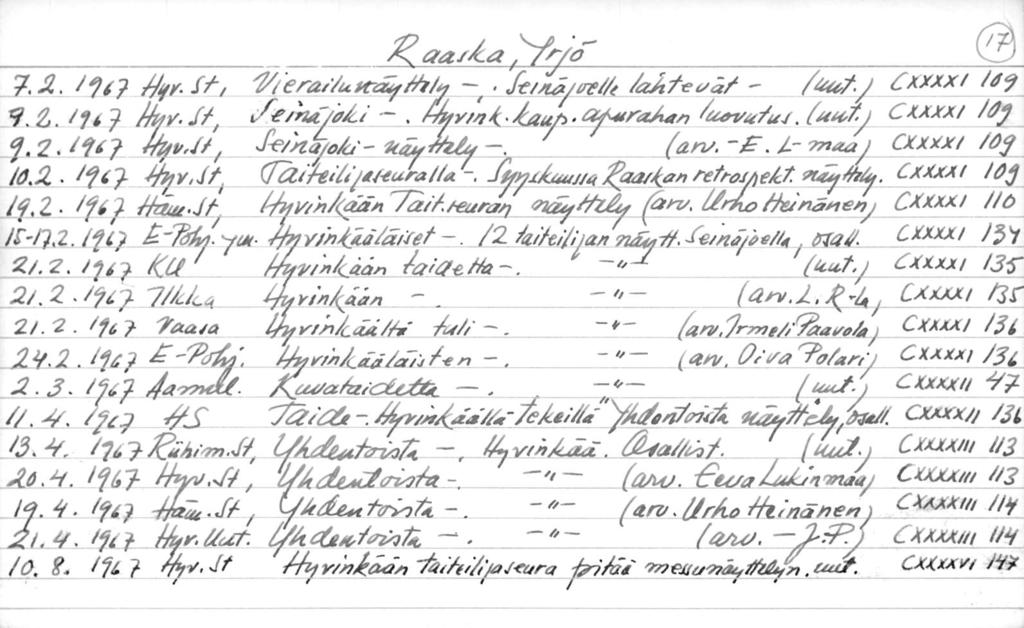 Raaska, Yrjö 17
7.2. 1967 Hyv. St, Vierailunäyttely -, . Seinäjoelle lähtevät - (uut.) CXXXXI 109
9.2. 1967 Hyv. St, Seinäjoki -. Hyvink. kaup. apurahan luovutus. (uut.) CXXXXI 109
9.2. 1967 Hyv. St, Seinäjoki - näyttely -. (arv. - E. L-maa) CXXXXI 109
10.2. 1967 Hyv. St, Taiteilijaseuralla -. Syyskuussa Raaskan retrospekt. näyttely. CXXXXI 109
19.2. 1967 Häm. St, Hyvinkään Tait.seuran näyttely (arv. Urho Heinänen) CXXXXI 110
15-17.2. 1967 E-Pohj. ym. Hyvinkääläiset -. 12 taiteilijan näytt. Seinäjoella, osall. CXXXXI 134
21.2. 1967 KU Hyvinkään taidetta -. -"- (uut.) CXXXXI 135
21.2. 1967 Ilkka Hyvinkään -. -"- (arv. L. R-la, CXXXXI 135
21.2. 1967 Vaasa Hyvinkäältä tuli -. -"- (arv. Irmeli Paavola) CXXXXI 136
24.2. 1967 E-Pohj. Hyvinkääläisten -. -"- (arv. Oiva Polari) CXXXXI 136
2. 3. 1967 Aamul. Kuvataidetta -. -"- (uut.) CXXXXII 47
11. 4. 1967 HS Taide - Hyvinkäällä tekeillä "Yhdentoista näyttely, osall. CXXXXII 136
13. 4. 1967 Riihim. St, Yhdentoista -, Hyvinkää. Osallist. (uut.) CXXXXIII 113
20. 4. 1967 Hyv. St, Yhdentoista -. -"- (arv. Eeva Lukinmaa) CXXXXIII 113
19. 4. 1967 Häm. St, Yhdentoista -. -"- (arv. Urho Heinänen) CXXXXIII 114
21. 4. 1967 Hyv. Uut. Yhdentoista -. -"- (arv. - J.P.) CXXXXIII 114
10. 8. 1967 Hyv. St Hyvinkään taiteilijaseura pitää messunäyttelyn. uut. CXXXXVI 147